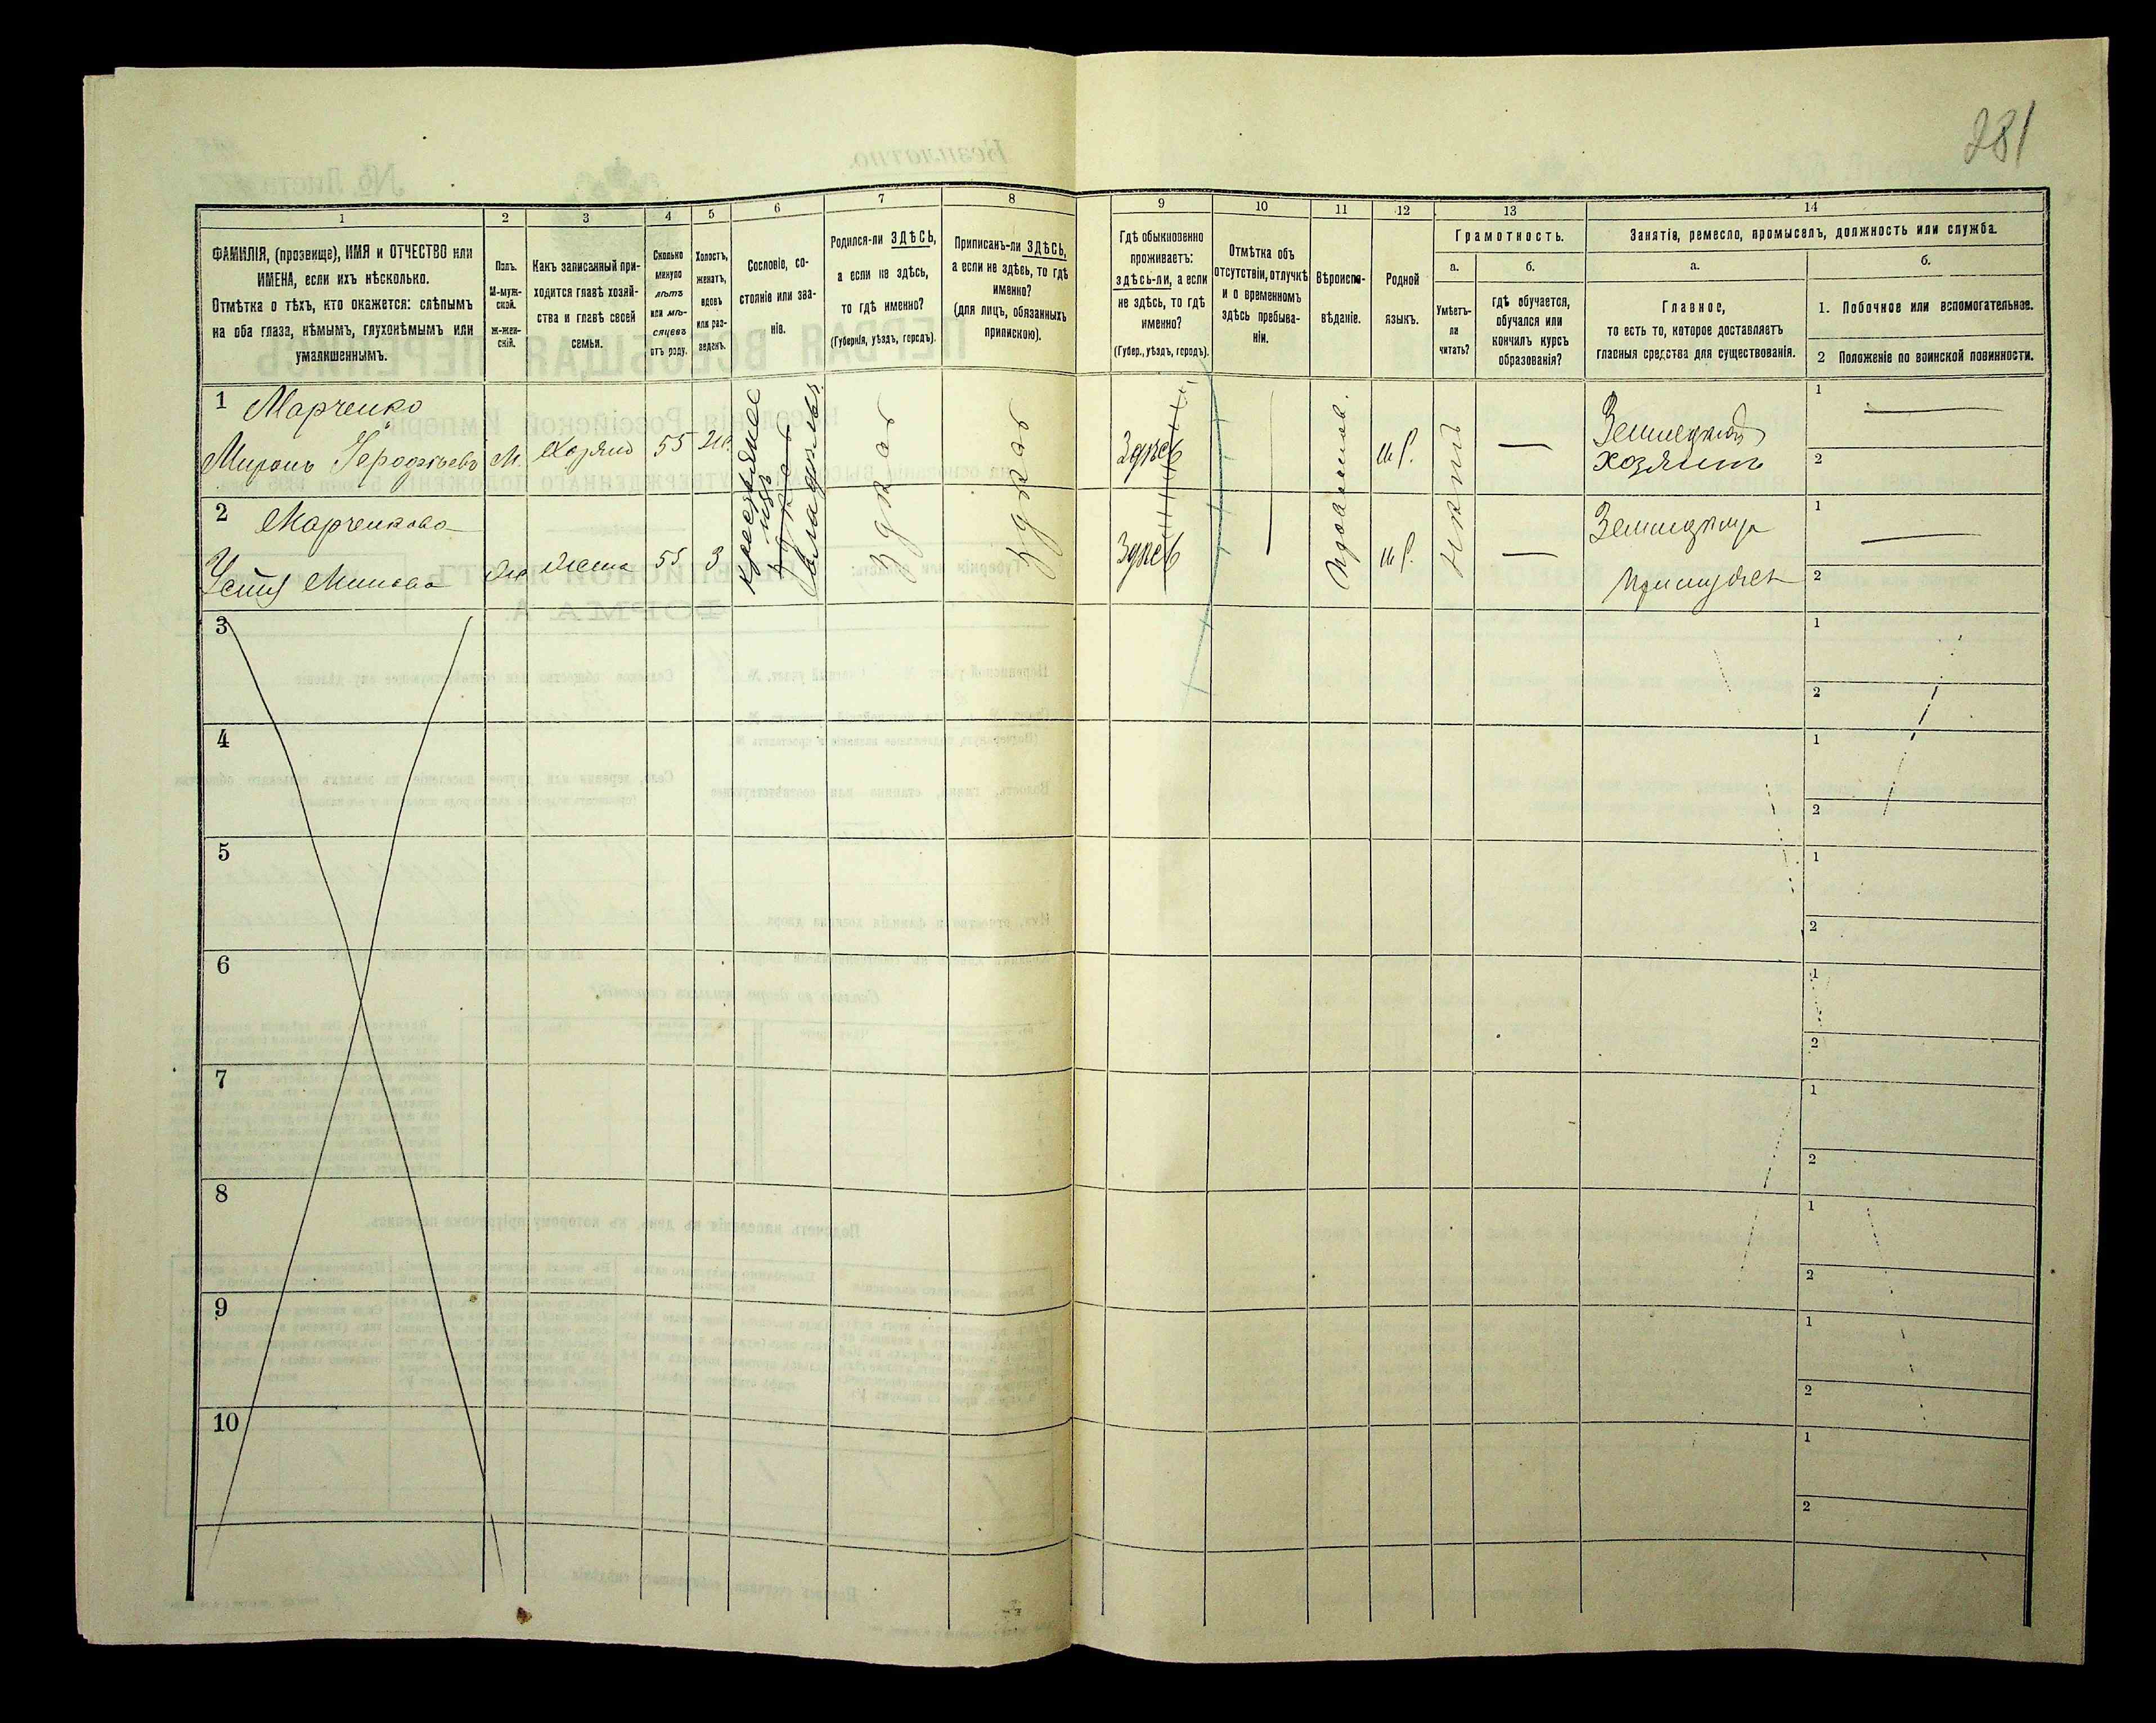 281
1
2
3
4
5
6
7
8
9
10
11
12
13
14
ФАМИЛІЯ, (прозвище), ИМЯ и ОТЧЕСТВО или
ИМЕНА, если ихъ нѣсколько.
Отмѣтка о тѣхъ, кто окажется: слѣпымъ
на оба глаза, нѣмымъ, глухонѣмымъ или
умалишеннымъ.
Полъ.
М-муж-
ской.
ж-жен-
скій.
Какъ записанный при-
ходится главѣ хозяй-
ства и главѣ своей
семьи.
Сколько
минуло
лѣтъ
или мѣ-
сяцевъ
отъ роду.
Холостъ,
женатъ,
вдовъ
или раз-
веденъ.
Сословіе, со-
стояніе или зва-
ніе.
Родился-ли ЗДѢСЬ,
а если не здѣсь,
то гдѣ именно?
(Губернія, уѣздъ, городъ).
Приписанъ-ли ЗДѢСЬ,
а если не здѣсь, то гдѣ
именно?
(для лицъ, обязанныхъ
припискою).
Гдѣ обыкновенно
проживаетъ:
здѣсь-ли, а если
не здѣсь, то гдѣ
именно?
(Губер., уѣздъ, городъ).
Отмѣтка объ
отсутствіи, отлучкѣ
и о временномъ
здѣсь пребыва-
ніи.
Вѣроиспо-
вѣданіе.
Родной
языкъ.
Грамотность.
а.
Умѣетъ-
ли
читать?
б.
гдѣ обучается,
обучался или
кончилъ курсъ
образованія?
Занятіе, ремесло, промыселъ, должность или служба.
а.
Главное,
то есть то, которое доставляетъ
главныя средства для существованія.
б.
1. Побочное или вспомогательное.
2 Положеніе по воинской повинности.
1 Марченко
Миронъ М. Хозяинъ 55 Ж.
Здѣсь
Здѣсь
Здѣсь
Православ.
М.Р.
Нѣтъ
—
Земледѣлец
хозяинъ
1 —
2
2 Марченкова
Устя Минова Ж Жена 55 З
Здѣсь
М.Р.
—
Земледѣлица
1 —
2
3
1
2
4
1
2
5
1
2
6
1
2
7
1
2
8
1
2
9
1
2
10
1
2